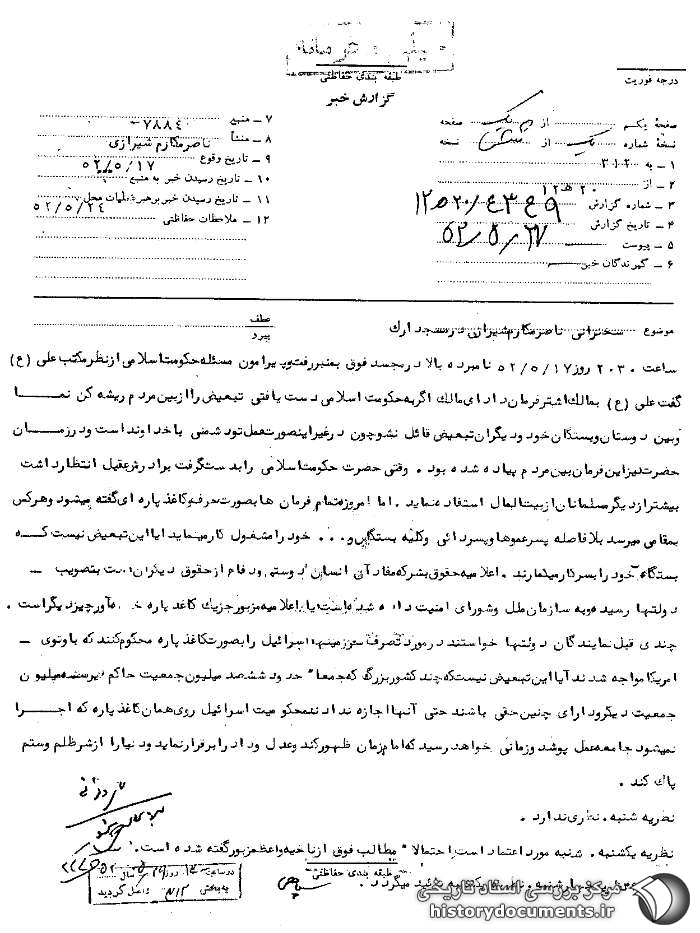 خیلی محرمانه
طبقه بندی حفاظتی
گزارش خبر
درجه فوریت
صفحه یکم از یک صفحه
نسخه شماره یک از شش نسخه
۱ ـ به ۳۱۲
۲ ـ از ۲۰ هـ ۱۲
۳ ـ شماره گزارش
۴ ـ تاریخ گزارش ۵۲/۵/۲۷
۵ ـ پیوست
۶ ـ گیرندگان خبر
۷ ـ منبع ۷۸۸۴
۸ ـ منشأ ناصر مکارم شیرازی
۹ ـ تاریخ وقوع ۵۲/۵/۱۷
۱۰ ـ تاریخ رسیدن خبر به منبع
۱۱ ـ تاریخ رسیدن خبر برهبر عملیات محل ۵۲/۵/۲۴
۱۲ ـ ملاحظات حفاظتی
موضوع سخنرانی ناصر مکارم شیرازی در مسجد ارك
عطف
پیرو
ساعت ۲۰۳۰ روز ۵۲/۵/۱۷ نامبرده بالا در مسجد فوق بمنبر رفت و پیرامون مسئله حکومت اسلامی از نظر مکتب علی (ع)
گفت علی (ع) بمالك اشتر فرمان داد ای مالك اگر به حکومت اسلامی دست یافتی تبعیض را از بین مردم ریشه کن نما
و بین دوستان و بستگان خود و دیگران تبعیض قائل نشو چون در غیر اینصورت عمل تو دشمنی با خداوند است و در زمان
حضرت نیز این فرمان بین مردم پیاده شده بود . وقتی حضرت حکومت اسلامی را بدست گرفت برادرش عقیل انتظار داشت
بیشتر از دیگر مسلمانان از بیت المال استفاده نماید . اما امروزه تمام فرمان ها بصورت حرف و کاغذ پاره ای گفته میشود و هرکس
بمقامی میرسد بلافاصله پسر عموها و پسر دائی و کلیه بستگان و . . . خود را مشغول کار مینماید ایا این تبعیض نیست که
بستگان خود را بسر کار میگمارند . اعلامیه حقوق بشر که مفاد آن انسان دوستی و دفاع از حقوق دیگران است بتصویب
دولتها رسیده و به سازمان ملل و شورای امنیت داده شده است یا اعلامیه مزبور جز یك کاغذ پاره آور چیز دیگر است .
چندی قبل نمایندگان دولتها خواستند در مورد تصرف سرزمینها اسرائیل را بصورت کاغذ پاره محکوم کنند که با وتوی
امریکا مواجه شدند آیا این تبعیض نیست که چند کشور بزرگ که جمعا" حدود ششصد میلیون جمعیت حاکم بر سه میلیون
جمعیت دیگر دارای چنین حقی باشند حتی آنها اجازه ندادند محکومیت اسرائیل روی همان کاغذ پاره که اجرا
نمیشود جامه عمل پوشد و زمانی خواهد رسید که امام زمان ظهور کند و عدل و داد را برقرار نماید و دنیا را از شر ظلم و ستم
پاك کند .
نظریه شنبه . نظری ندارد .
نظریه یکشنبه . شنبه مورد اعتماد است احتمالا" مطالب فوق از ناحیه واعظ مزبور گفته شده است .
طبقه بندی حفاظتی
نظریه چهارشنبه . نظریه یکشنبه تائید میگردد .
به بخش ۳۱۲ واصل گردید
مرکز بررسی اسناد تاریخی
historydocuments.ir